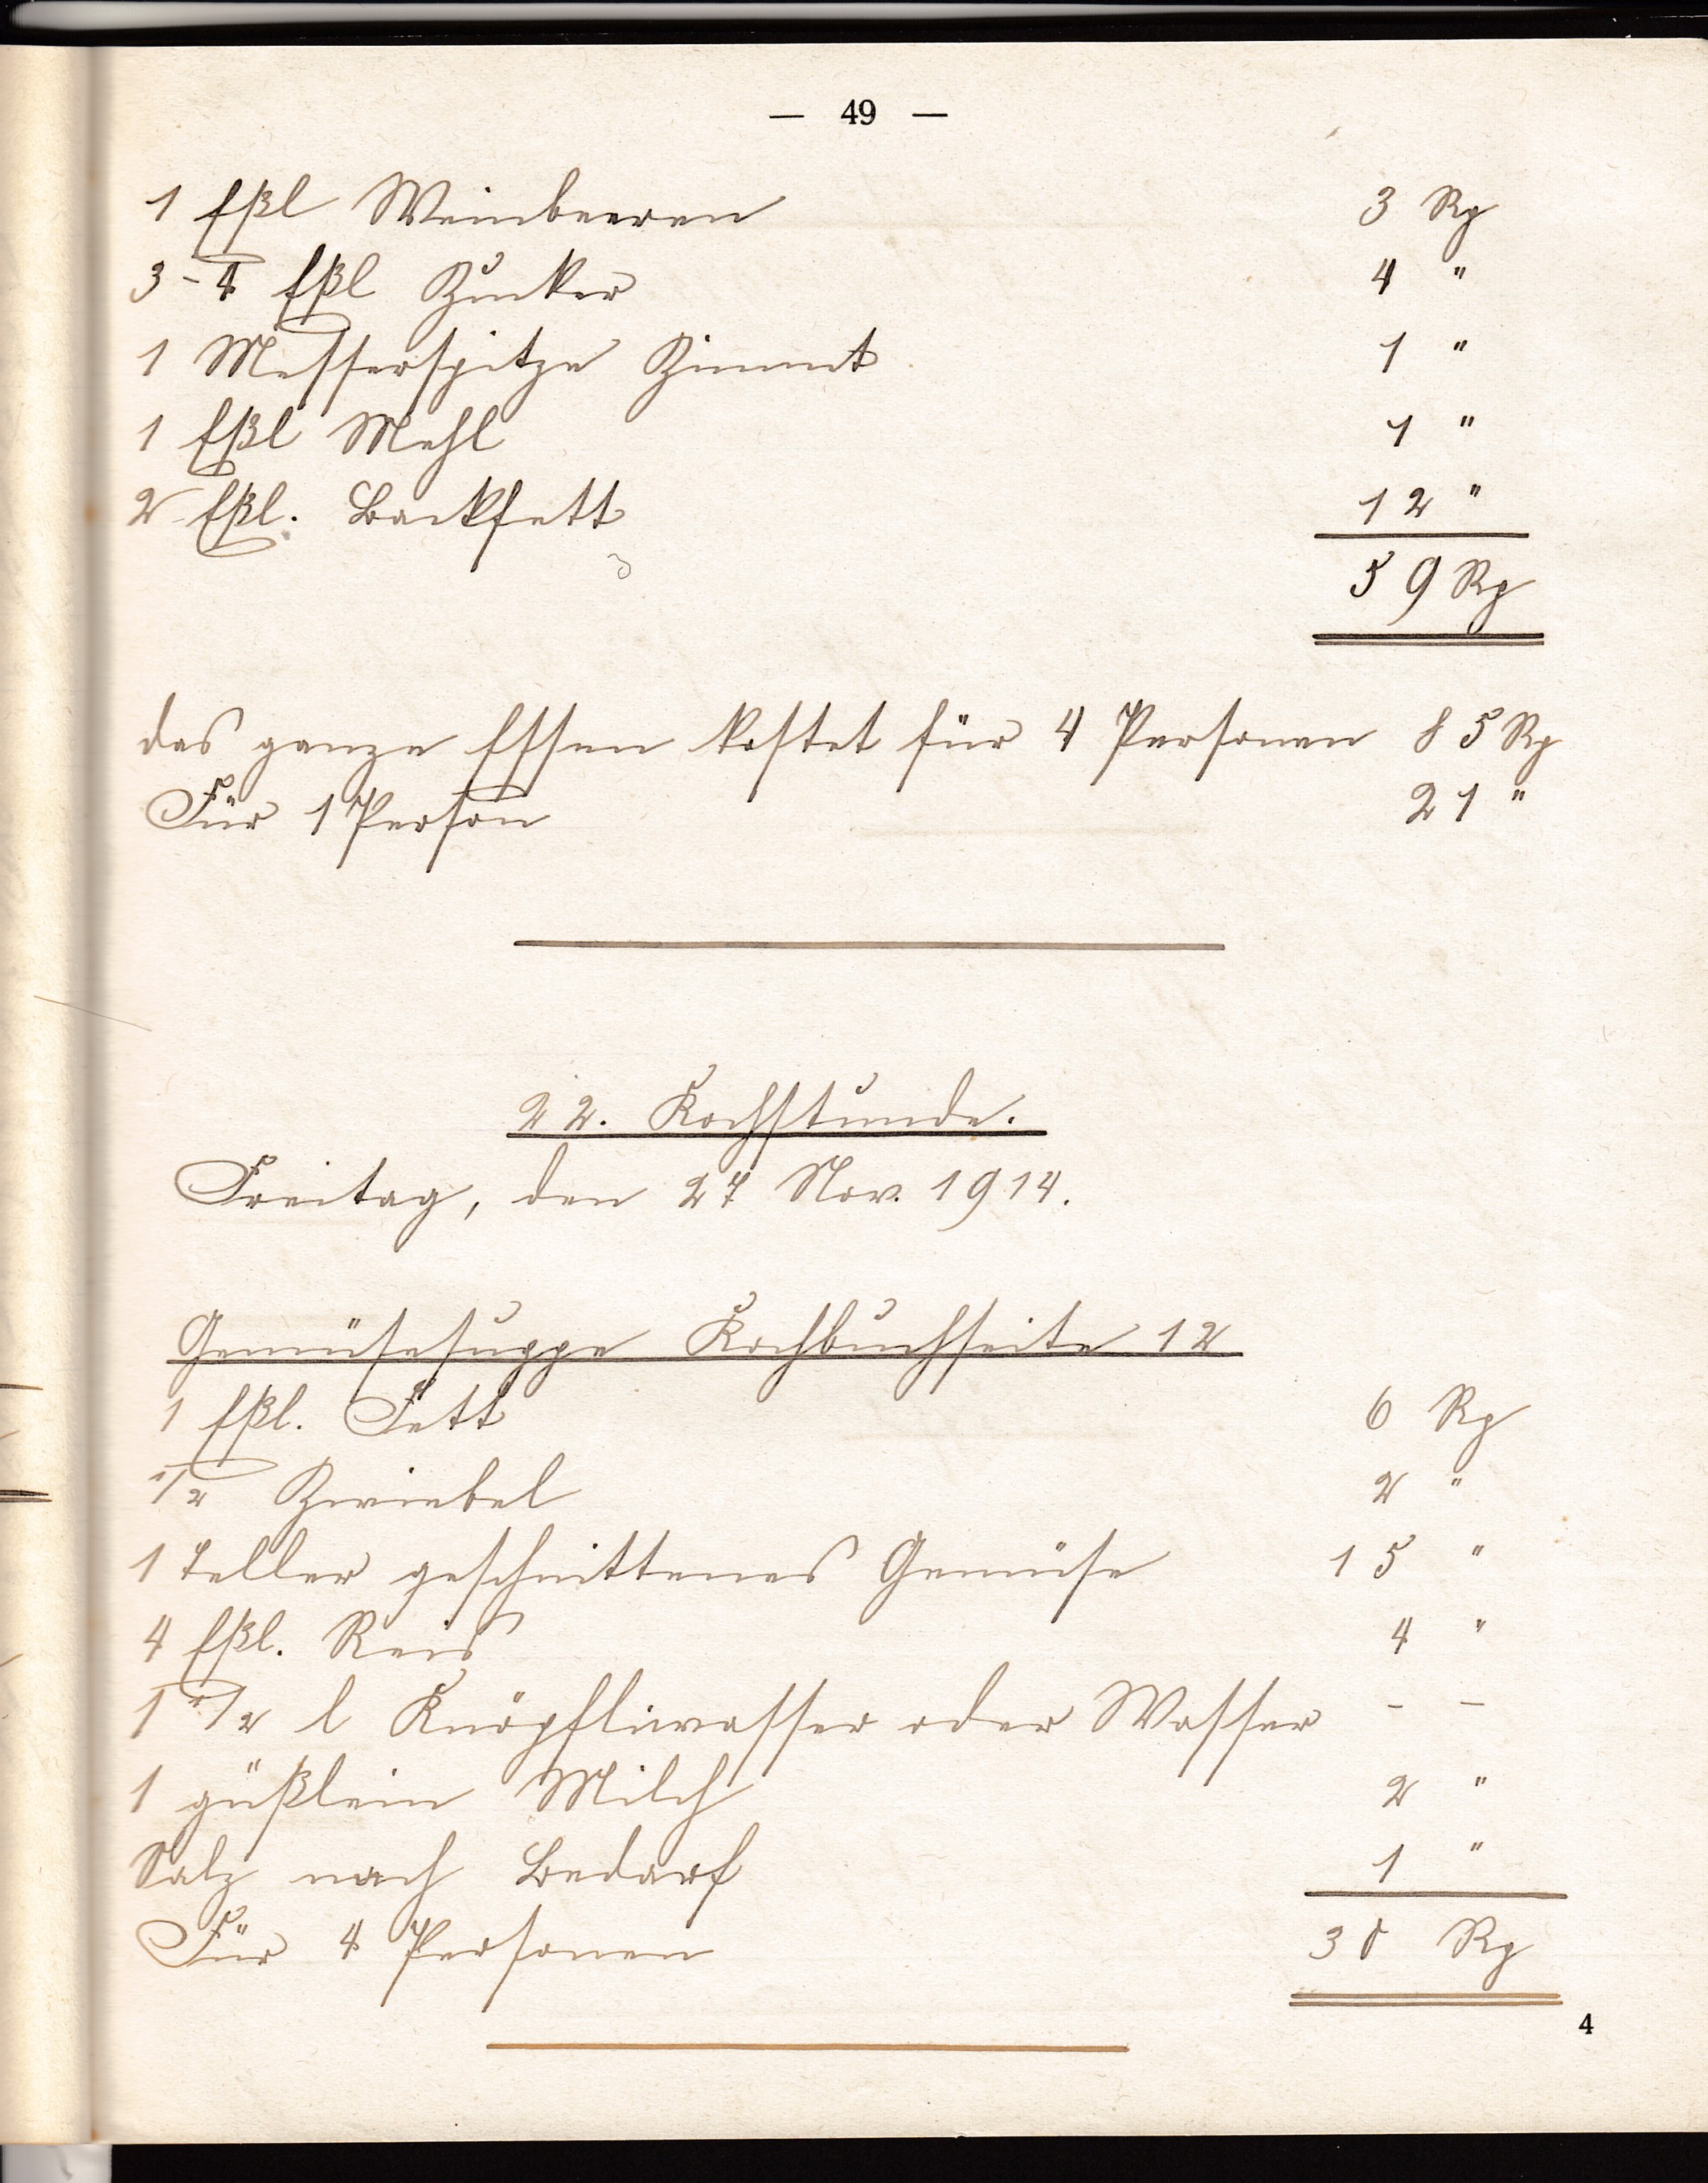 — 49 —
1 Eßl Weinbeeren 3 Rp
3-4 Eßl Zucker 4 "
1 Messerspitze Zimmt 1 "
1 Eßl Mehl 1 "
2 Eßl. Backfett 12 "
59 Rp
das ganze Essen kostet für 4 Personen 85 Rp
Für 1 Person 21 "
22. Kochstunde.
Freitag, den 27 Nov. 1914.
Gemüsesuppe Kochbuchseite 12
1 Eßl. Fett 6 Rp
1/2 Zwiebel 2 "
1 Teller geschnittenes Gemüse 15 "
4 Eßl. Reis 4 "
1 1/2 l Knöpfliwasser oder Wasser - -
1 güßlein Milch 2 "
Salz nach Bedarf 1 "
Für 4 Personen 30 Rp
4